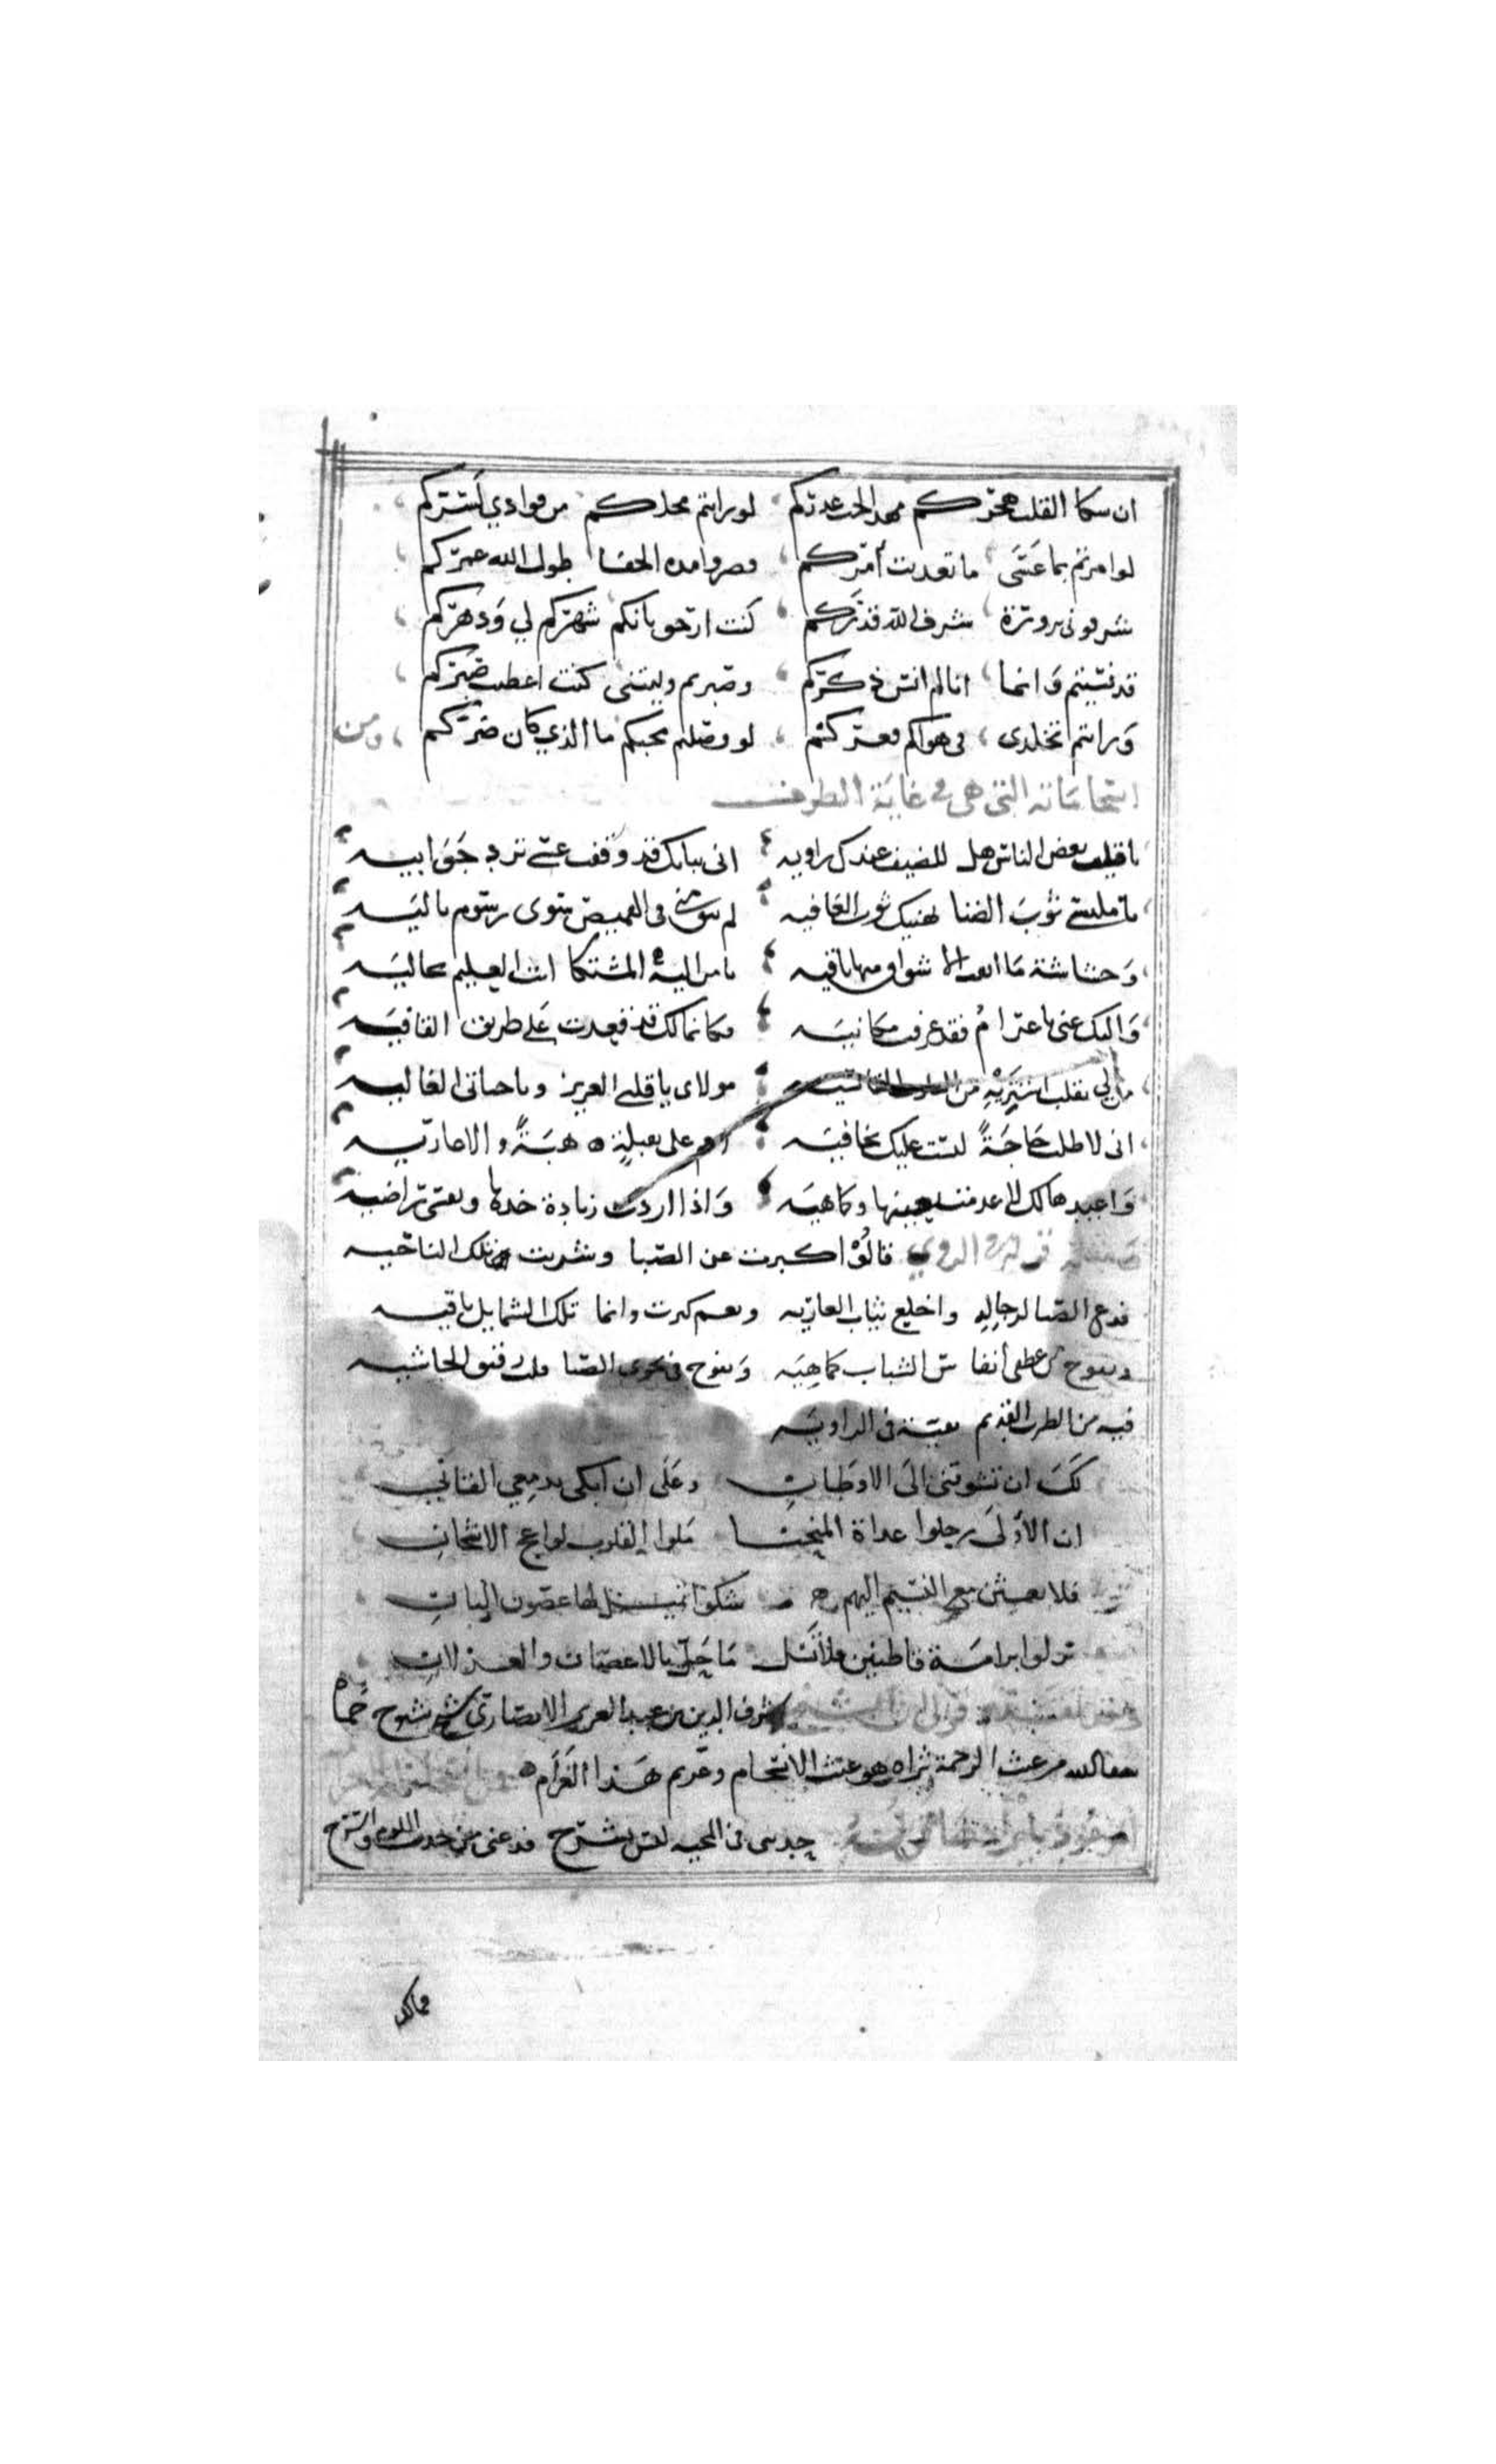 ان شكا القلب هجركم مهد الحب عذركم لو رايتم محلكم من فوادي لسركم
لو امرتم بما عسى ما تعديت أمركم قصروا مدة الجفا طول الله عمركم
شرفونى بزورة شرف الله قدركم كنت ارجو بانكم شهركم لي ودهركم
قد نسيتم وانما انا لم انس ذكركم وصبرتم وليتنى كنت اعطيت صبركم
ورايتم تجلدى في هواكم فغركم لو وصلتم محبكم ما الذي كان ضركم ومن
انسجاماته التى هى فى غاية الظرف
يا قلب بعض الناس هل للضيف عندك زاويه انى ببابك قد وقفت عسى ترد جوابيه
يا ملبسى ثوب الضنا يهنيك ثوب العافيه لم يبق منى فى القميص سوى رسوم باليه
وحشاشة ما ابقت الاشواق منها باقيه يا من اليه المشتكا انت العليم بحاليه
واليك عنى يا غرام فقد عرفت مكانيه فكانما لك قد قعدت على طريق القافيه
من لى بقلب اشتريه من القلوب القاسيه مولاى يا قلبى العزيز ويا حياتى الغاليه
انى لاطلب حاجة ليست عليك بخافيه على بقبلة هبة والا عاريه
واعيدها لك لا عدمت بعينها وكما هيه واذا اردت زيادة خذها ونفسى راضيه
الروي قالوا كبرت عن الصبا وقطعت تلك الناحيه
فدع الصبا لرجاله واخلع ثياب العاريه ونعم كبرت وانما تلك الشمايل باقيه
ويفوح من عطفى أنفاس الشباب كما هيه ويميل بى نحو الصبا قلب رقيق الحاشيه
فيه من الطرب القديم بقية فى الزاويه
لك ان تشوقنى الى الاوطان وعلى ان ابكى بدمعي القانى
ان الأولى رحلوا غداة المنحنا ملوا القلوب لواعج الاشجان
فلابعثن مع النسيم اليهم شكوا تميل لها غصون البان
نزلوا برامة قاطنين فلا تسل ما حل بالاغصان والغزلان
قول الشيخ شرف الدين بن عبد العزيز الانصارى شيخ شيوخ حماه
غيث الرحمة ثراه هو غيث الانسجام وغريم هذا الغرام
فى المحبه ليس يشرح فدعنى من حديث اللوم واسترح